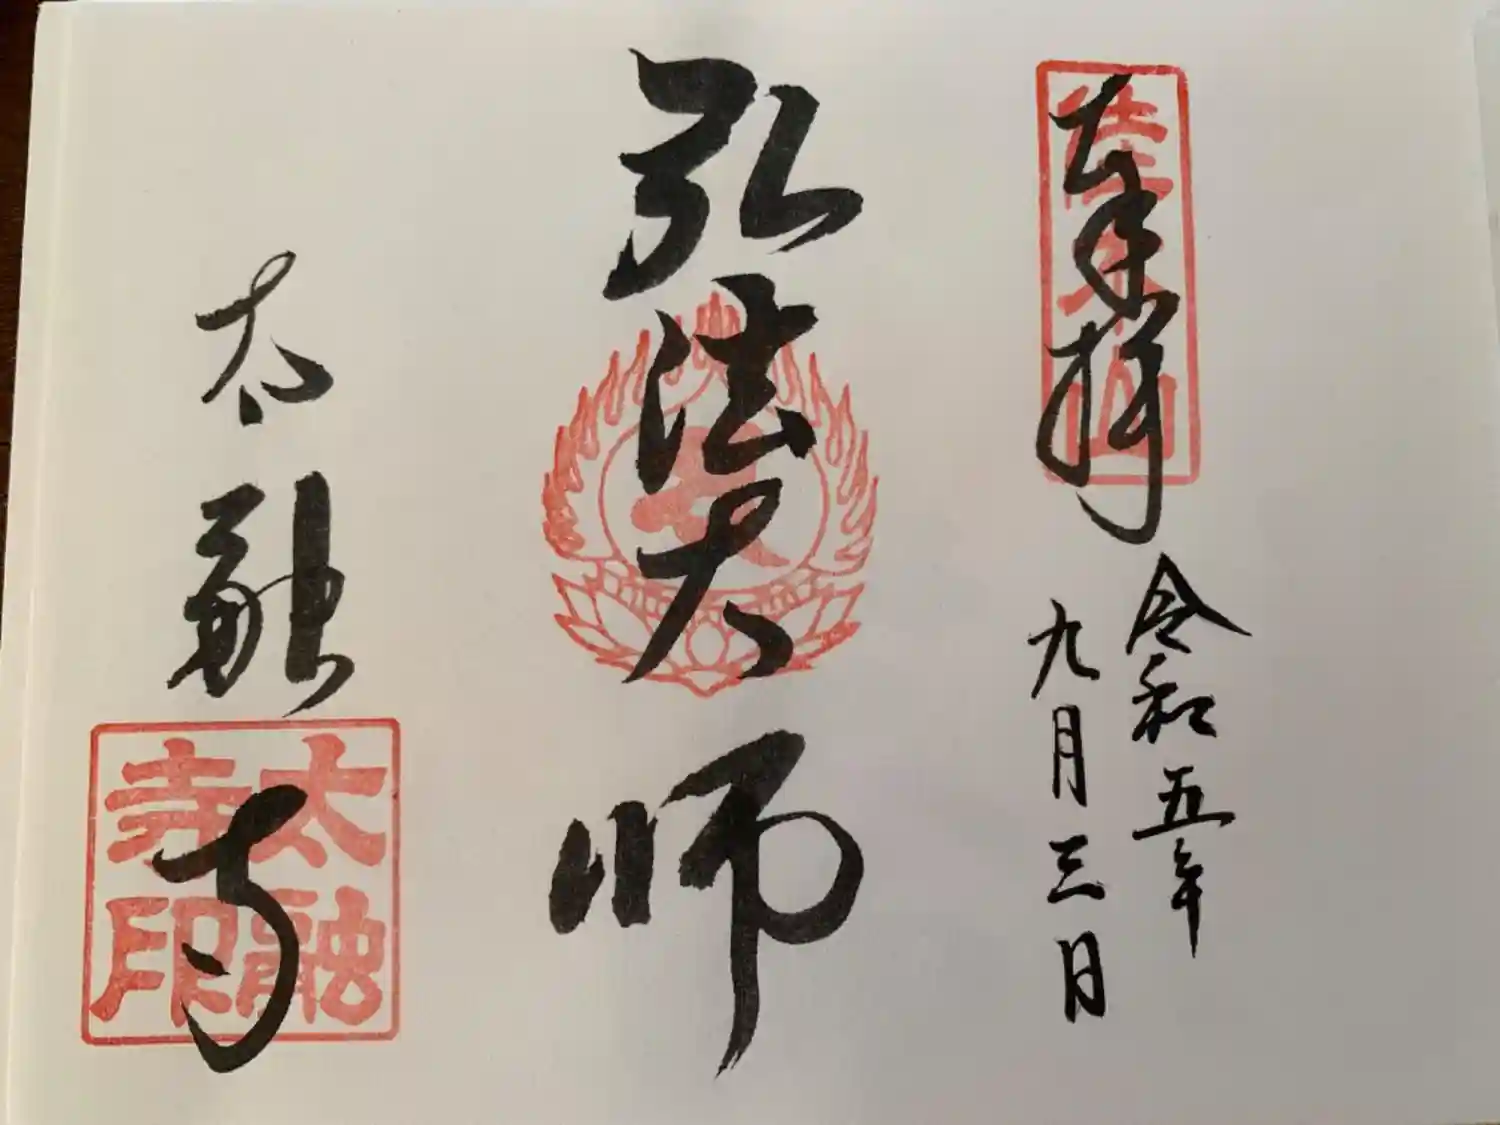 奉拝
佳木山
令和五年
九月三日
弘法大師
太融寺
太融
寺印